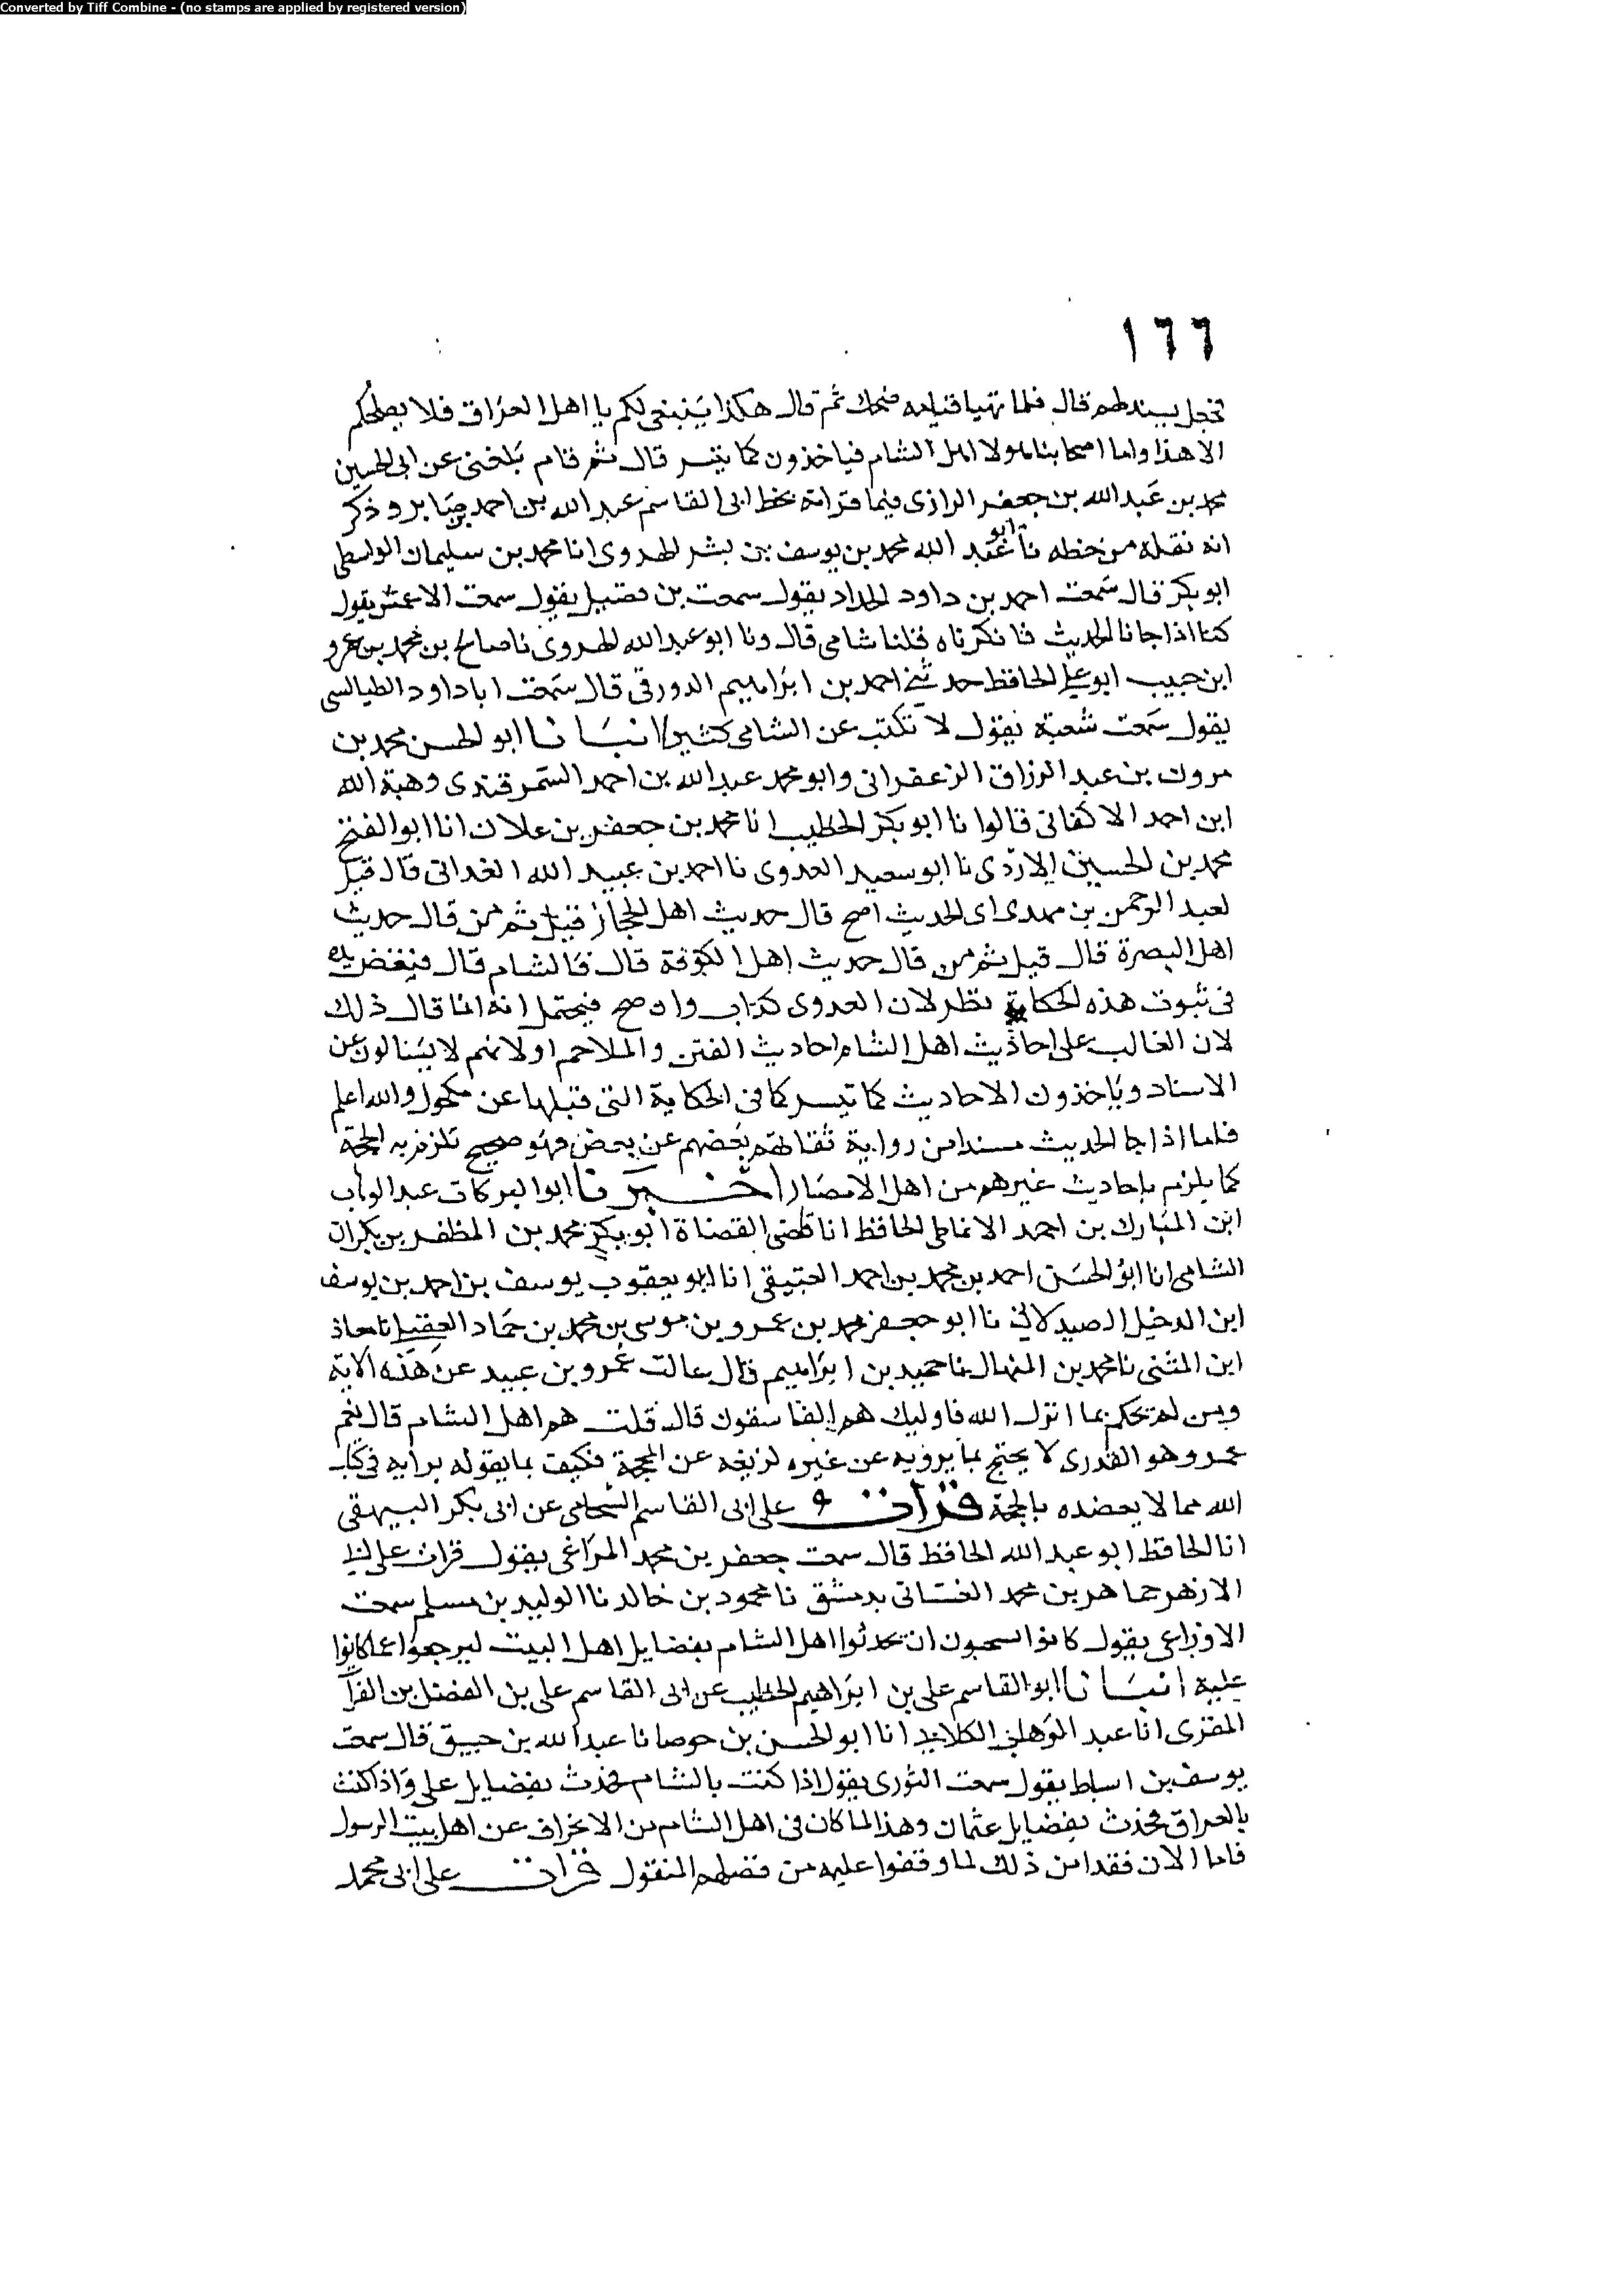 Converted by Tiff Combine - (no stamps are applied by registered version)
١٦٦
فجعل يسند لهم قال فلما تهيا قيامه ضحك ثم قال هكذا ينبغى لكم يا اهل العراق فلا يصلحكم
الا هذا واما اصحابنا هولا اهل الشام فياخذون كما تيسر قال ثم قام بلغنى عن ابى الحسين
محمد بن عبد الله بن جعفر الرازى فيما قراته بخط ابى القاسم عبد الله بن احمد بن صابر وذكر
انه نقله من خطه نا ابو عبد الله محمد بن يوسف بن بشر الهروى انا محمد بن سليمان الواسطى
ابو بكر قال سمعت احمد بن داود الحداد يقول سمعت بن فضيل يقول سمعت الاعمش يقول
كنا اذا جانا الحديث فانكرناه قلنا شامى قال ونا ابو عبد الله الهروى نا صالح بن محمد بن عمرو
ابن حبيب ابو على الحافظ حدثنى احمد بن ابراهيم الدورقى قال سمعت ابا داود الطيالسى
يقول سمعت شعبة يقول لا تكتب عن الشامى كثيرا انبانا ابو الحسن محمد بن
مروك بن عبد الرزاق الزعفرانى وابو محمد عبد الله بن احمد السمرقندى وهبة الله
ابن احمد الاكفانى قالوا نا ابو بكر الخطيب انا محمد بن جعفر بن علان انا ابو الفتح
محمد بن الحسين الازدى نا ابو سعيد العدوى نا احمد بن عبيد الله الغدانى قال قيل
لعبد الرحمن بن مهدى اى الحديث اصح قال حديث اهل الحجاز قيل ثم من قال حديث
اهل البصرة قال قيل ثم من قال حديث اهل الكوفة قال فالشام قال فنفض يده
فى ثبوت هذه الحكاية نظر لان العدوى كذاب وان صح فيحتمل انه انما قال ذلك
لان الغالب على احاديث اهل الشام احاديث الفتن والملاحم او لانهم لا يسالون عن
الاسناد وياخذون الاحاديث كما تيسر كما فى الحكاية التى قبلها عن مكحول والله اعلم
فاما اذا جا الحديث مسندا من رواية ثقاتهم بعضهم عن بعض فهو صحيح تلزم به الحجة
كما يلزم باحاديث غيرهم من اهل الامصار اخبرنا ابو البركات عبد الوهاب
ابن المبارك بن احمد الانماطى الحافظ انا قاضى القضاة ابو بكر محمد بن المظفر بن بكران
الشامى انا ابو الحسن احمد بن محمد بن احمد العتيقى انا ابو يعقوب يوسف بن احمد بن يوسف
ابن الدخيل الصيدلانى نا ابو جعفر محمد بن عمرو بن موسى بن محمد بن حماد العقيلى نا معاذ
ابن المثنى نا محمد بن المنهال نا حميد بن ابراهيم قال سالت عمرو بن عبيد عن هذه الاية
ومن لم يحكم بما انزل الله فاوليك هم الفاسقون قال قلت هم اهل الشام قال نعم
عمرو هو القدرى لا يحتج بما يرويه عن غيره لزيغه عن المحجة فكيف بما يقوله برايه فى كتاب
الله مما لا يعضده بالحجة قرات على ابى القاسم الشحامى عن ابى بكر البيهقى
انا الحافظ ابو عبد الله الحافظ قال سمعت جعفر بن محمد المراغى يقول قرات على ابى
الازهر جماهر بن محمد الغسانى بدمشق نا محمود بن خالد نا الوليد بن مسلم سمعت
الاوزاعى يقول كانوا يستحبون ان يحدثوا اهل الشام بفضايل اهل البيت ليرجعوا عما كانوا
عليه انبانا ابو القاسم على بن ابراهيم الخطيب عن ابى القاسم على بن الفضل بن الفرات
المقرى انا عبد الوهاب الكلابى انا ابو الحسن بن جوصا نا عبد الله بن خبيق قال سمعت
يوسف بن اسباط يقول سمعت الثورى يقول اذا كنت بالشام فحدث بفضايل على واذا كنت
بالعراق فحدث بفضايل عثمان وهذا لما كان فى اهل الشام من الانحراف عن اهل بيت الرسول
فاما الان فقد امن ذلك لما وقفوا عليه من فضلهم المنقول قرات على ابى محمد